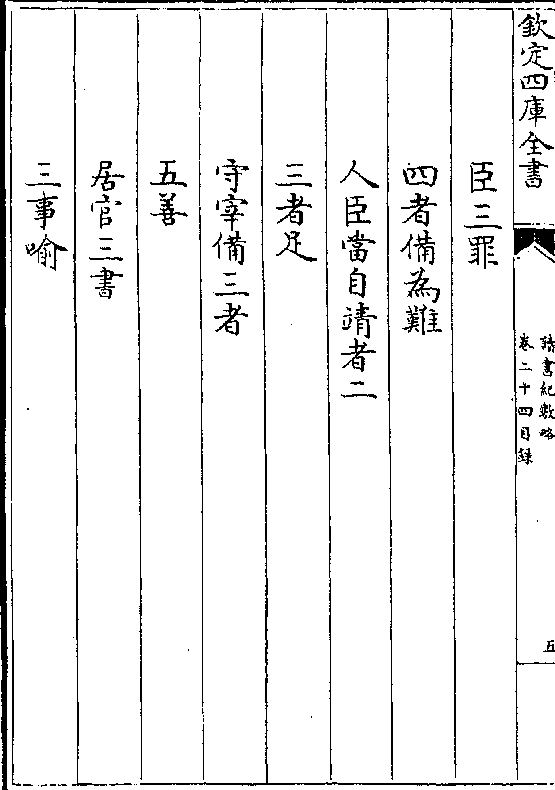 欽定四庫全書
讀書紀數略
卷二十四目錄
五
臣三罪
四者備為難
人臣當自靖者二
三者足
守宰備三者
五善
居官三書
三事喻